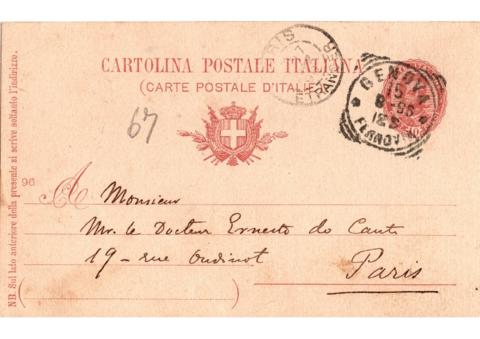 PARIS
ETRANGER
CARTOLINA POSTALE ITALIANA
(CARTE POSTALE D'ITALIE)
GENOVA
FERROVIA
67
96
A Monsieur
Mr. le Docteur Ernesto do Canto
19 - rue Oudinot
Paris
NB. Sul lato anteriore della presente si scrive soltanto l'indirizzo.